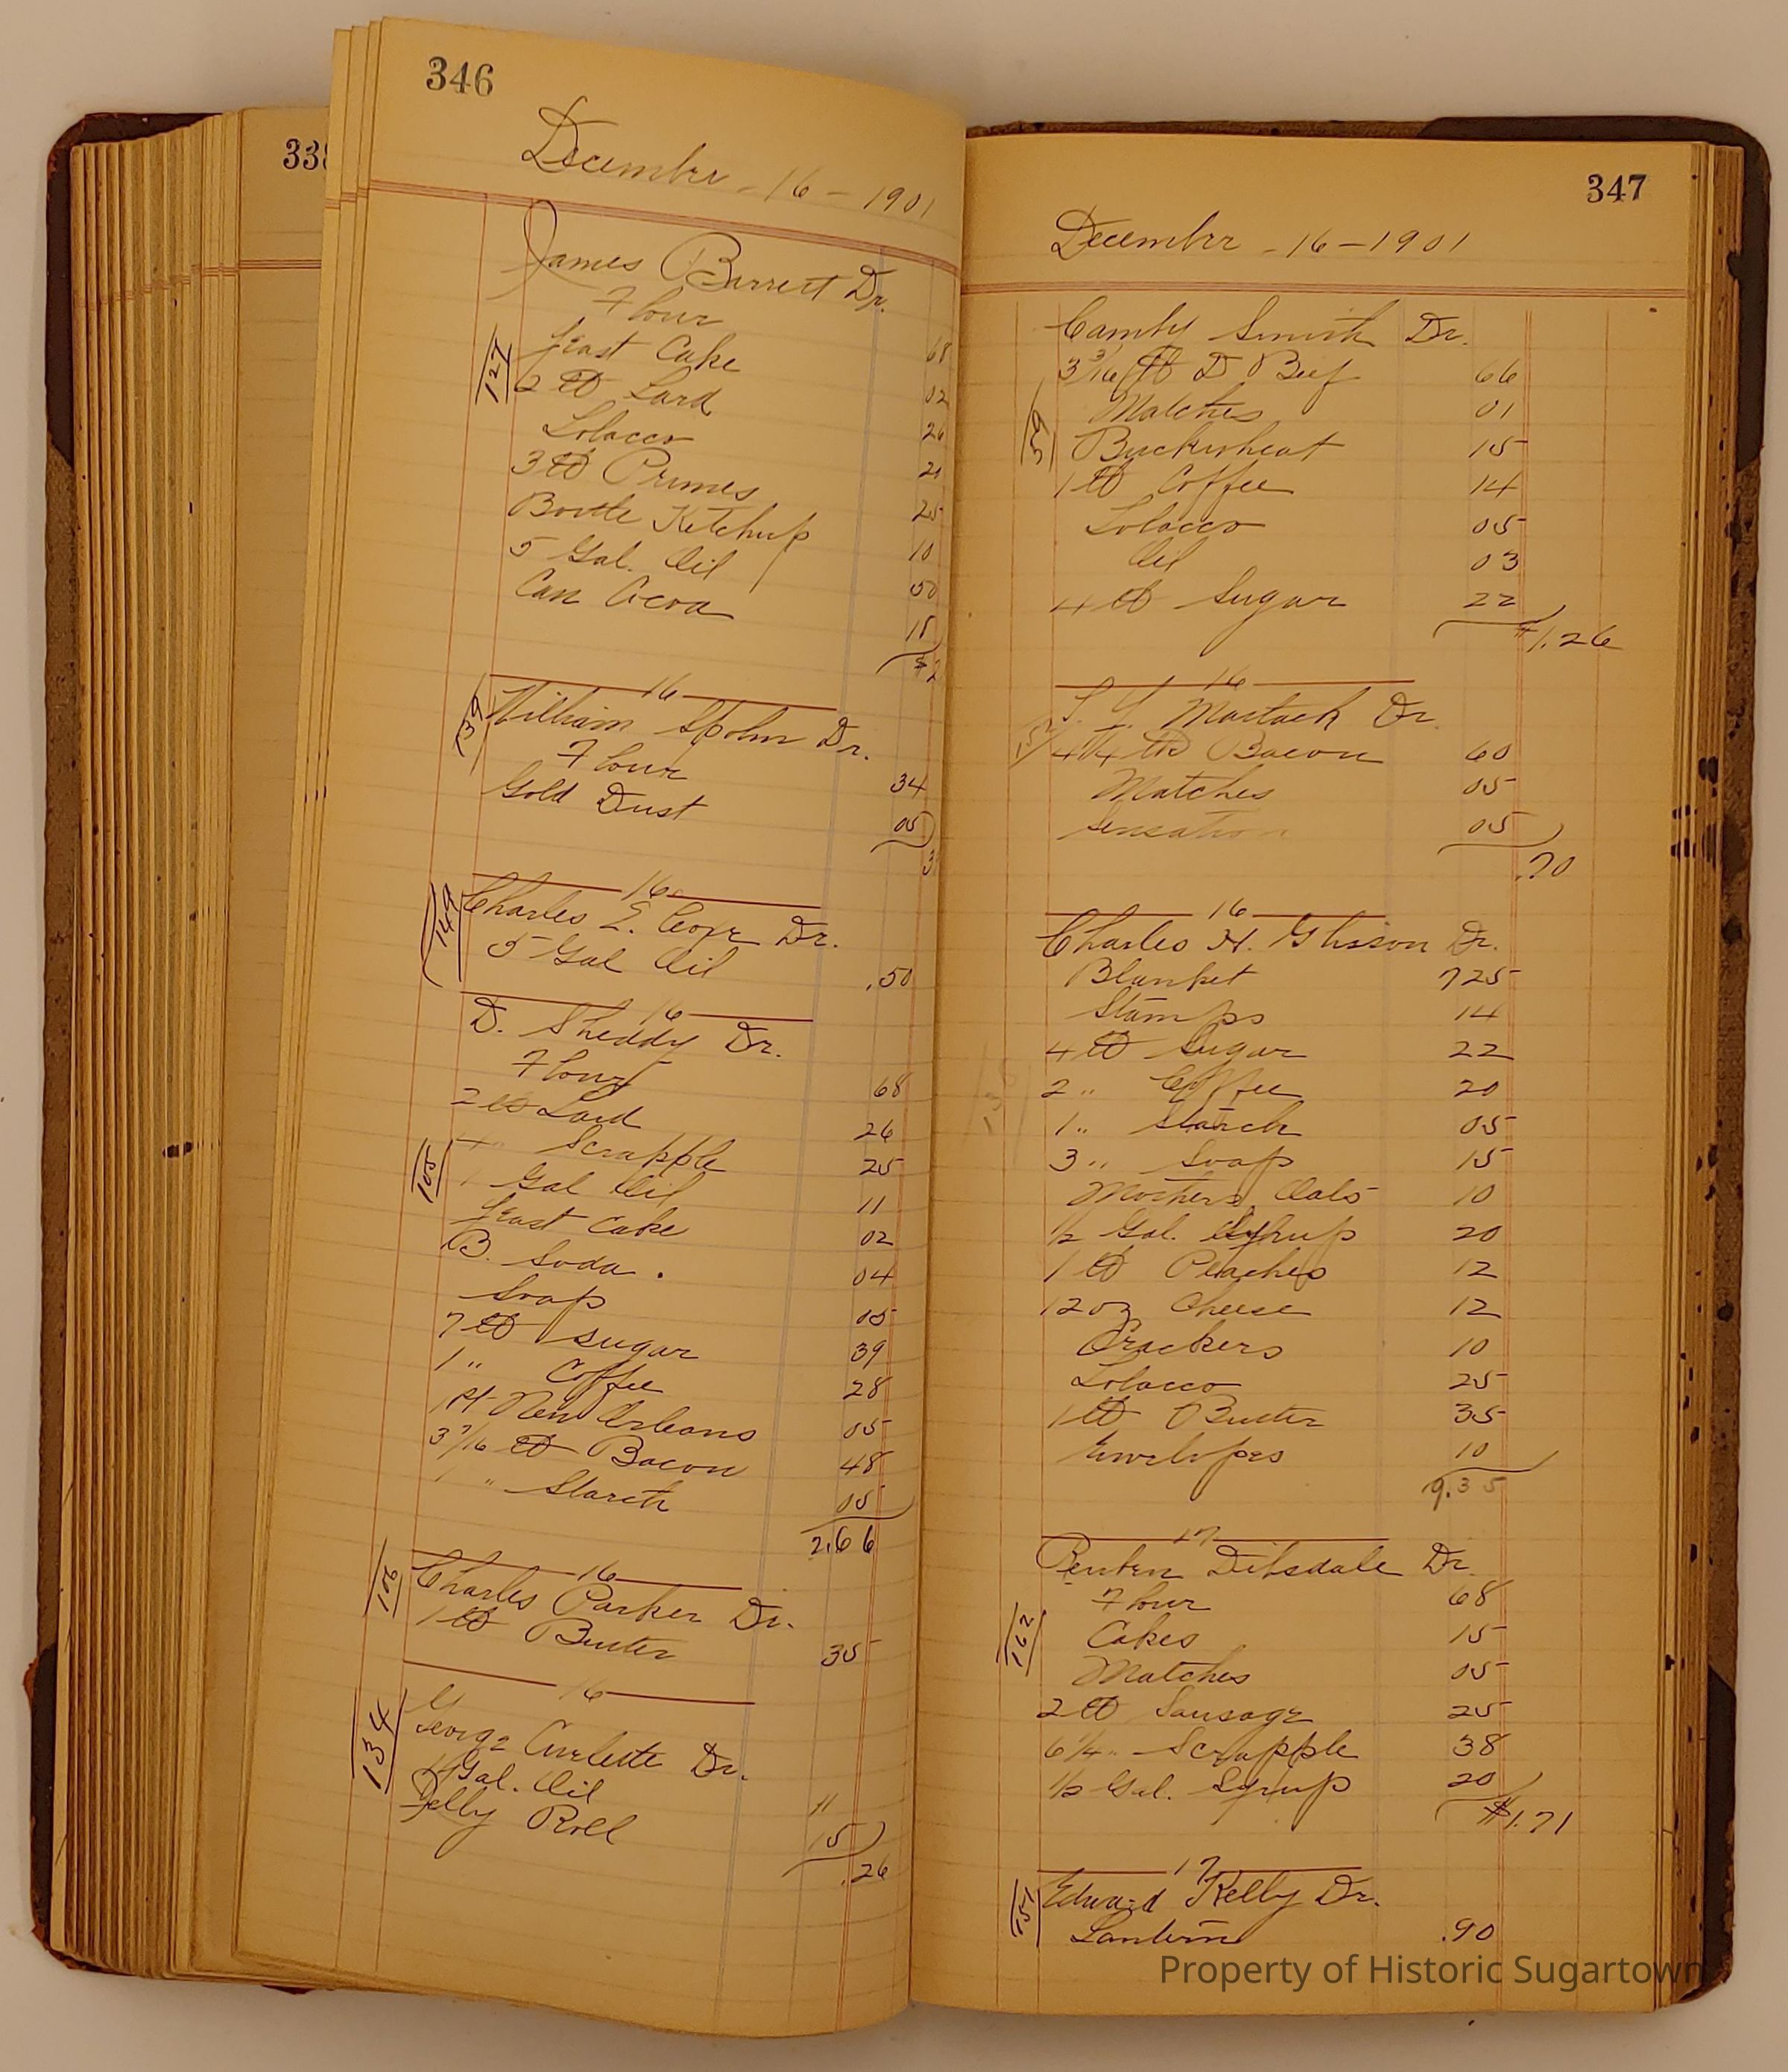 346
December - 16 - 1901
James Barrett Dr.
Flour 68
Yeast Cake 02
2 lb Lard 26
Tobacco 21
3 lb Prunes 25
Bottle Ketchup 10
5 Gal. Oil 50
Can Cocoa 15
$2
127
16
William Spohn Dr.
Flour 34
Gold Dust 05
3
139
16
Charles E. Cope Dr.
5 Gal Oil .50
149
16
D. Sheddy Dr.
Flour 68
2 lb Lard 26
Scrapple 25
1 Gal Oil 11
Yeast Cake 02
B. Soda . 04
Soap 05
7 lb Sugar 39
1 " Coffee 28
1 Pt New Orleans 05
3 7/16 lb Bacon 48
1 " Starch 05
2.66
105
16
Charles Parker Dr.
1 lb Butter 35
106
16
George Dr.
1 Gal. Oil 11
Jelly Roll 15
.26
134
338
347
December - 16 - 1901
Smith Dr.
3 3/16 lb D Beef 66
Matches 01
Buckwheat 15
1 lb Coffee 14
Tobacco 05
Oil 03
4 lb Sugar 22
$1.26
59
16
Dr.
4 1/4 lb Bacon 60
Matches 05
Sensation 05
.70
152
16
Charles H. Glisson Dr.
Blanket 7 25
Stamps 14
4 lb Sugar 22
2 " Coffee 20
1 " Starch 05
3 " Soap 15
Mothers Oats 10
1/2 Gal. Syrup 20
1 lb Peaches 12
12 oz Cheese 12
Crackers 10
Tobacco 25
1 lb Butter 35
Envelopes 10
9.35
17
Reuben Dilsdale Dr
Flour 68
Cakes 15
Matches 05
2 lb Sausage 25
6 1/4 " Scrapple 38
1/2 Gal. Syrup 20
$1.71
162
17
Edward Kelly Dr.
Lantern .90
157
Property of Historic Sugartown